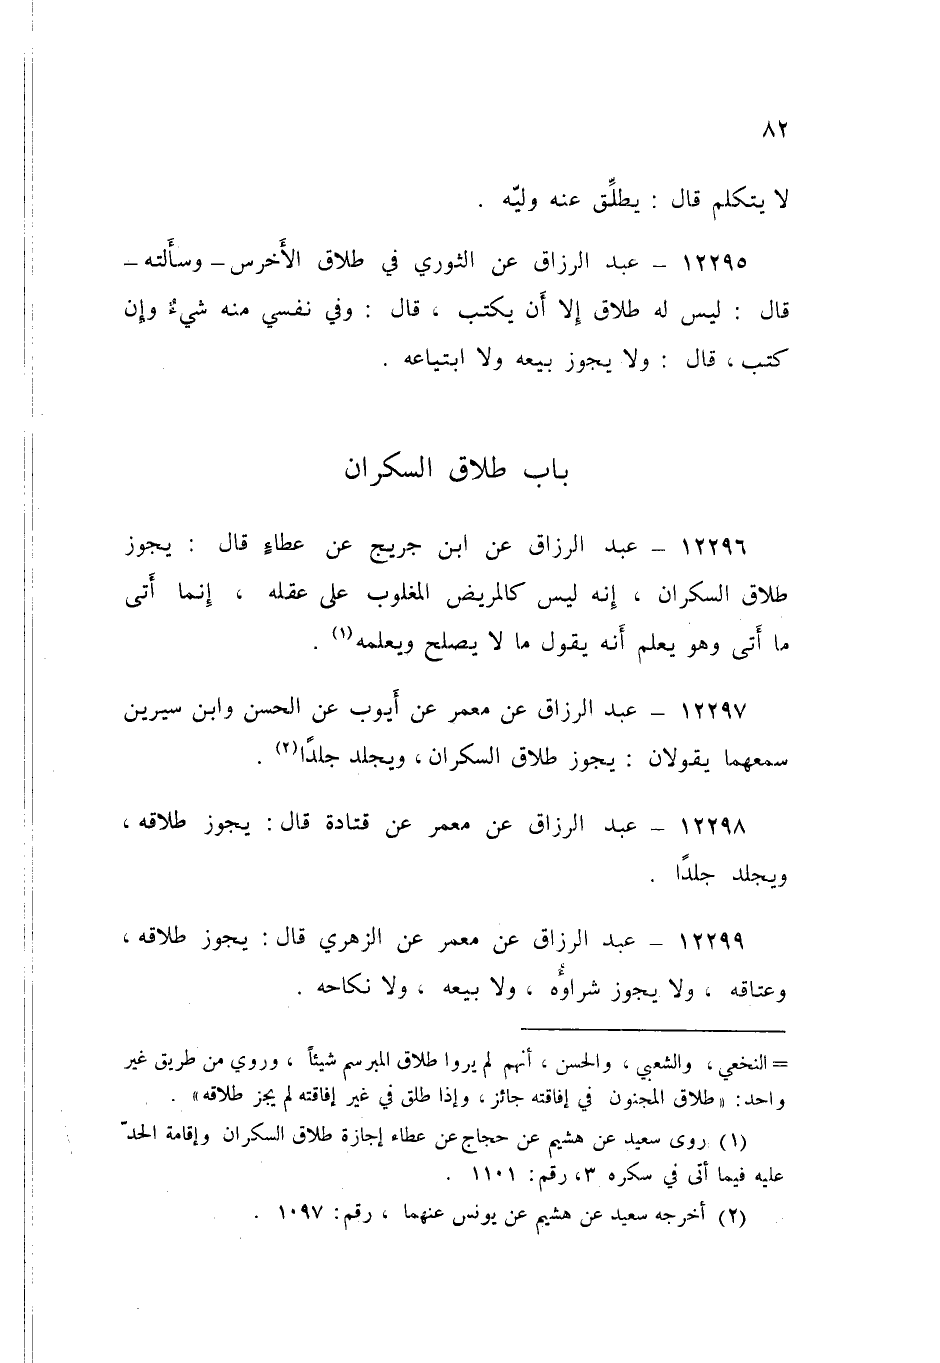 ٨٢
لا يتكلم قال : يطلِّق عنه وليّه .
١٢٢٩٥ – عبد الرزاق عن الثوري في طلاق الأَخرس – وسأَلته –
قال : ليس له طلاق إلا أَن يكتب ، قال : وفي نفسي منه شيءٌ وإن
كتب ، قال : ولا يجوز بيعه ولا ابتياعه .
باب طلاق السكران
١٢٢٩٦ – عبد الرزاق عن ابن جريج عن عطاءٍ قال : يجوز
طلاق السكران ، إنه ليس كالمريض المغلوب على عقله ، إنما أَتى
ما أَتى وهو يعلم أَنه يقول ما لا يصلح ويعلمه(١) .
١٢٢٩٧ – عبد الرزاق عن معمر عن أَيوب عن الحسن وابن سيرين
سمعهما يقولان : يجوز طلاق السكران ، ويجلد جلدًا(٢) .
١٢٢٩٨ – عبد الرزاق عن معمر عن قتادة قال : يجوز طلاقه ،
ويجلد جلدًا .
١٢٢٩٩ – عبد الرزاق عن معمر عن الزهري قال : يجوز طلاقه ،
وعتاقه ، ولا يجوز شراوُٴه ، ولا بيعه ، ولا نكاحه .
= النخعي ، والشعبي ، والحسن ، أنهم لم يروا طلاق المبرسم شيئاً ، وروي من طريق غير
واحد : « طلاق المجنون في إفاقته جائز ، وإذا طلق في غير إفاقته لم يجز طلاقه » .
(١) روى سعيد عن هشيم عن حجاج عن عطاء إجازة طلاق السكران وإقامة الحدّ
عليه فيما أتى في سكره ٣، رقم : ١١٠١ .
(٢) أخرجه سعيد عن هشيم عن يونس عنهما ، رقم : ١٠٩٧ .